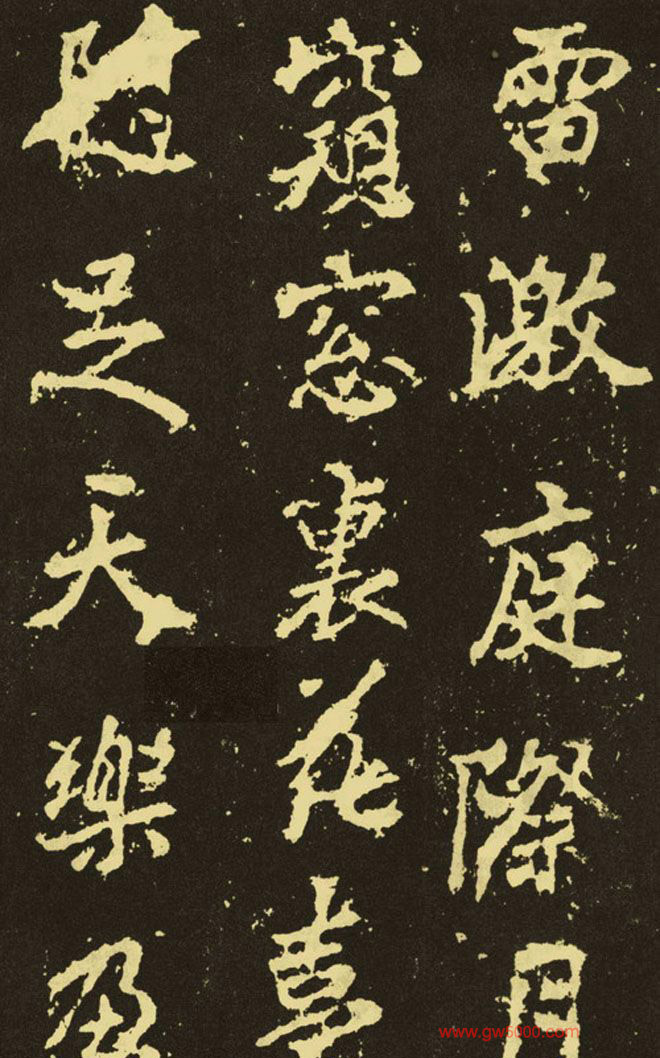 雷激庭際日
窺窓裏花事
足天樂
www.gw5000.com